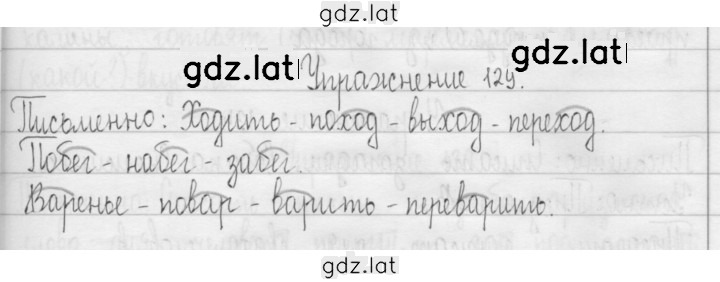 gdz.lat
gdz.lat Упражнение 129.
Письменно: Ходить - поход - выход - переход.
Побег - набег - забег.
Варенье - повар - варить - переварить.
gdz.lat